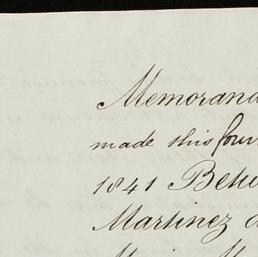 Memorand
made this four
1841 Betw
Martinez